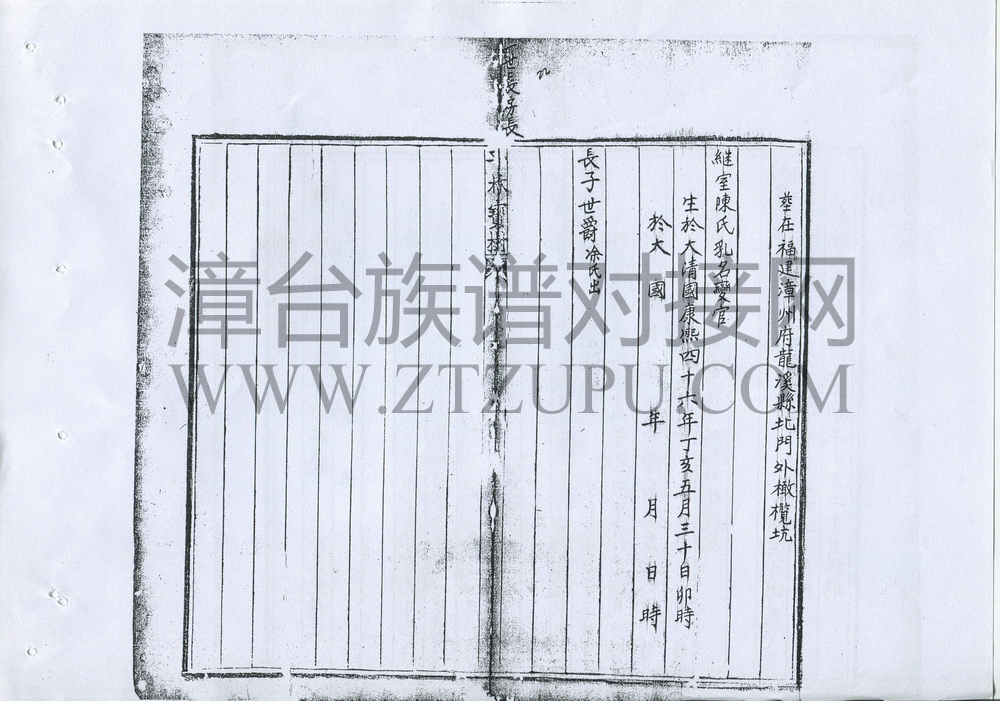 葬在福建漳州府龍溪縣北門外橄欖坑
継室陳氏乳名孌官
生於大清國康熙四十六年丁亥五月三十日卯時
於大 國 年 月 日 時
長子世爵 凃氏出
世長房長
漳台族谱对接网
WWW.ZTZUPU.COM